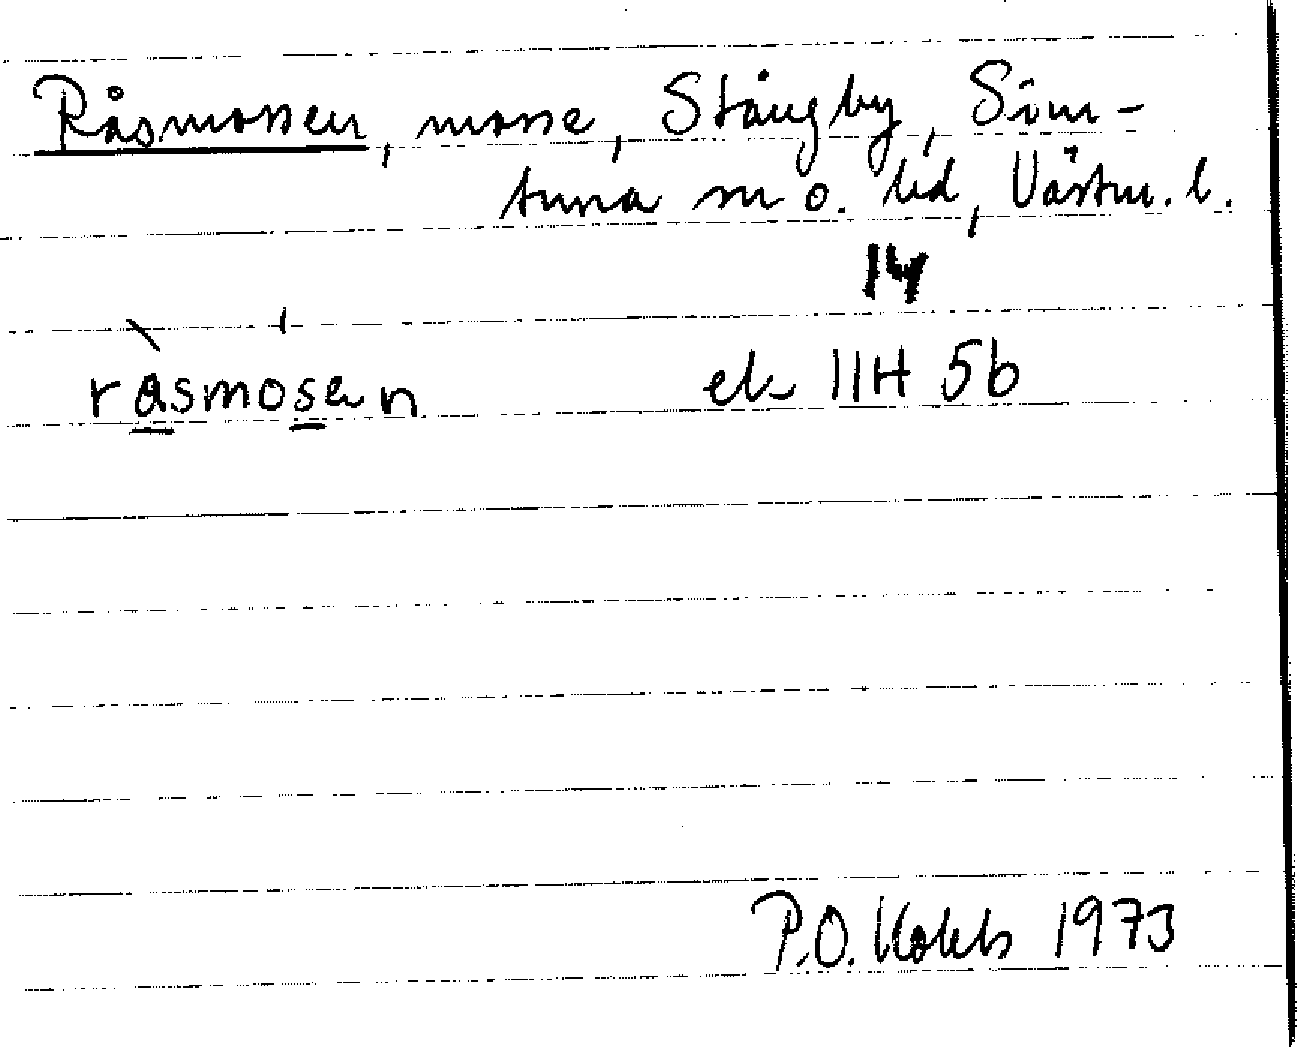 Råsmossen, mosse, Stångby, Sim-
tuna sn o. hd, Västm. l.
14
råsmosen
ek 11H 5b
P.O. 1973